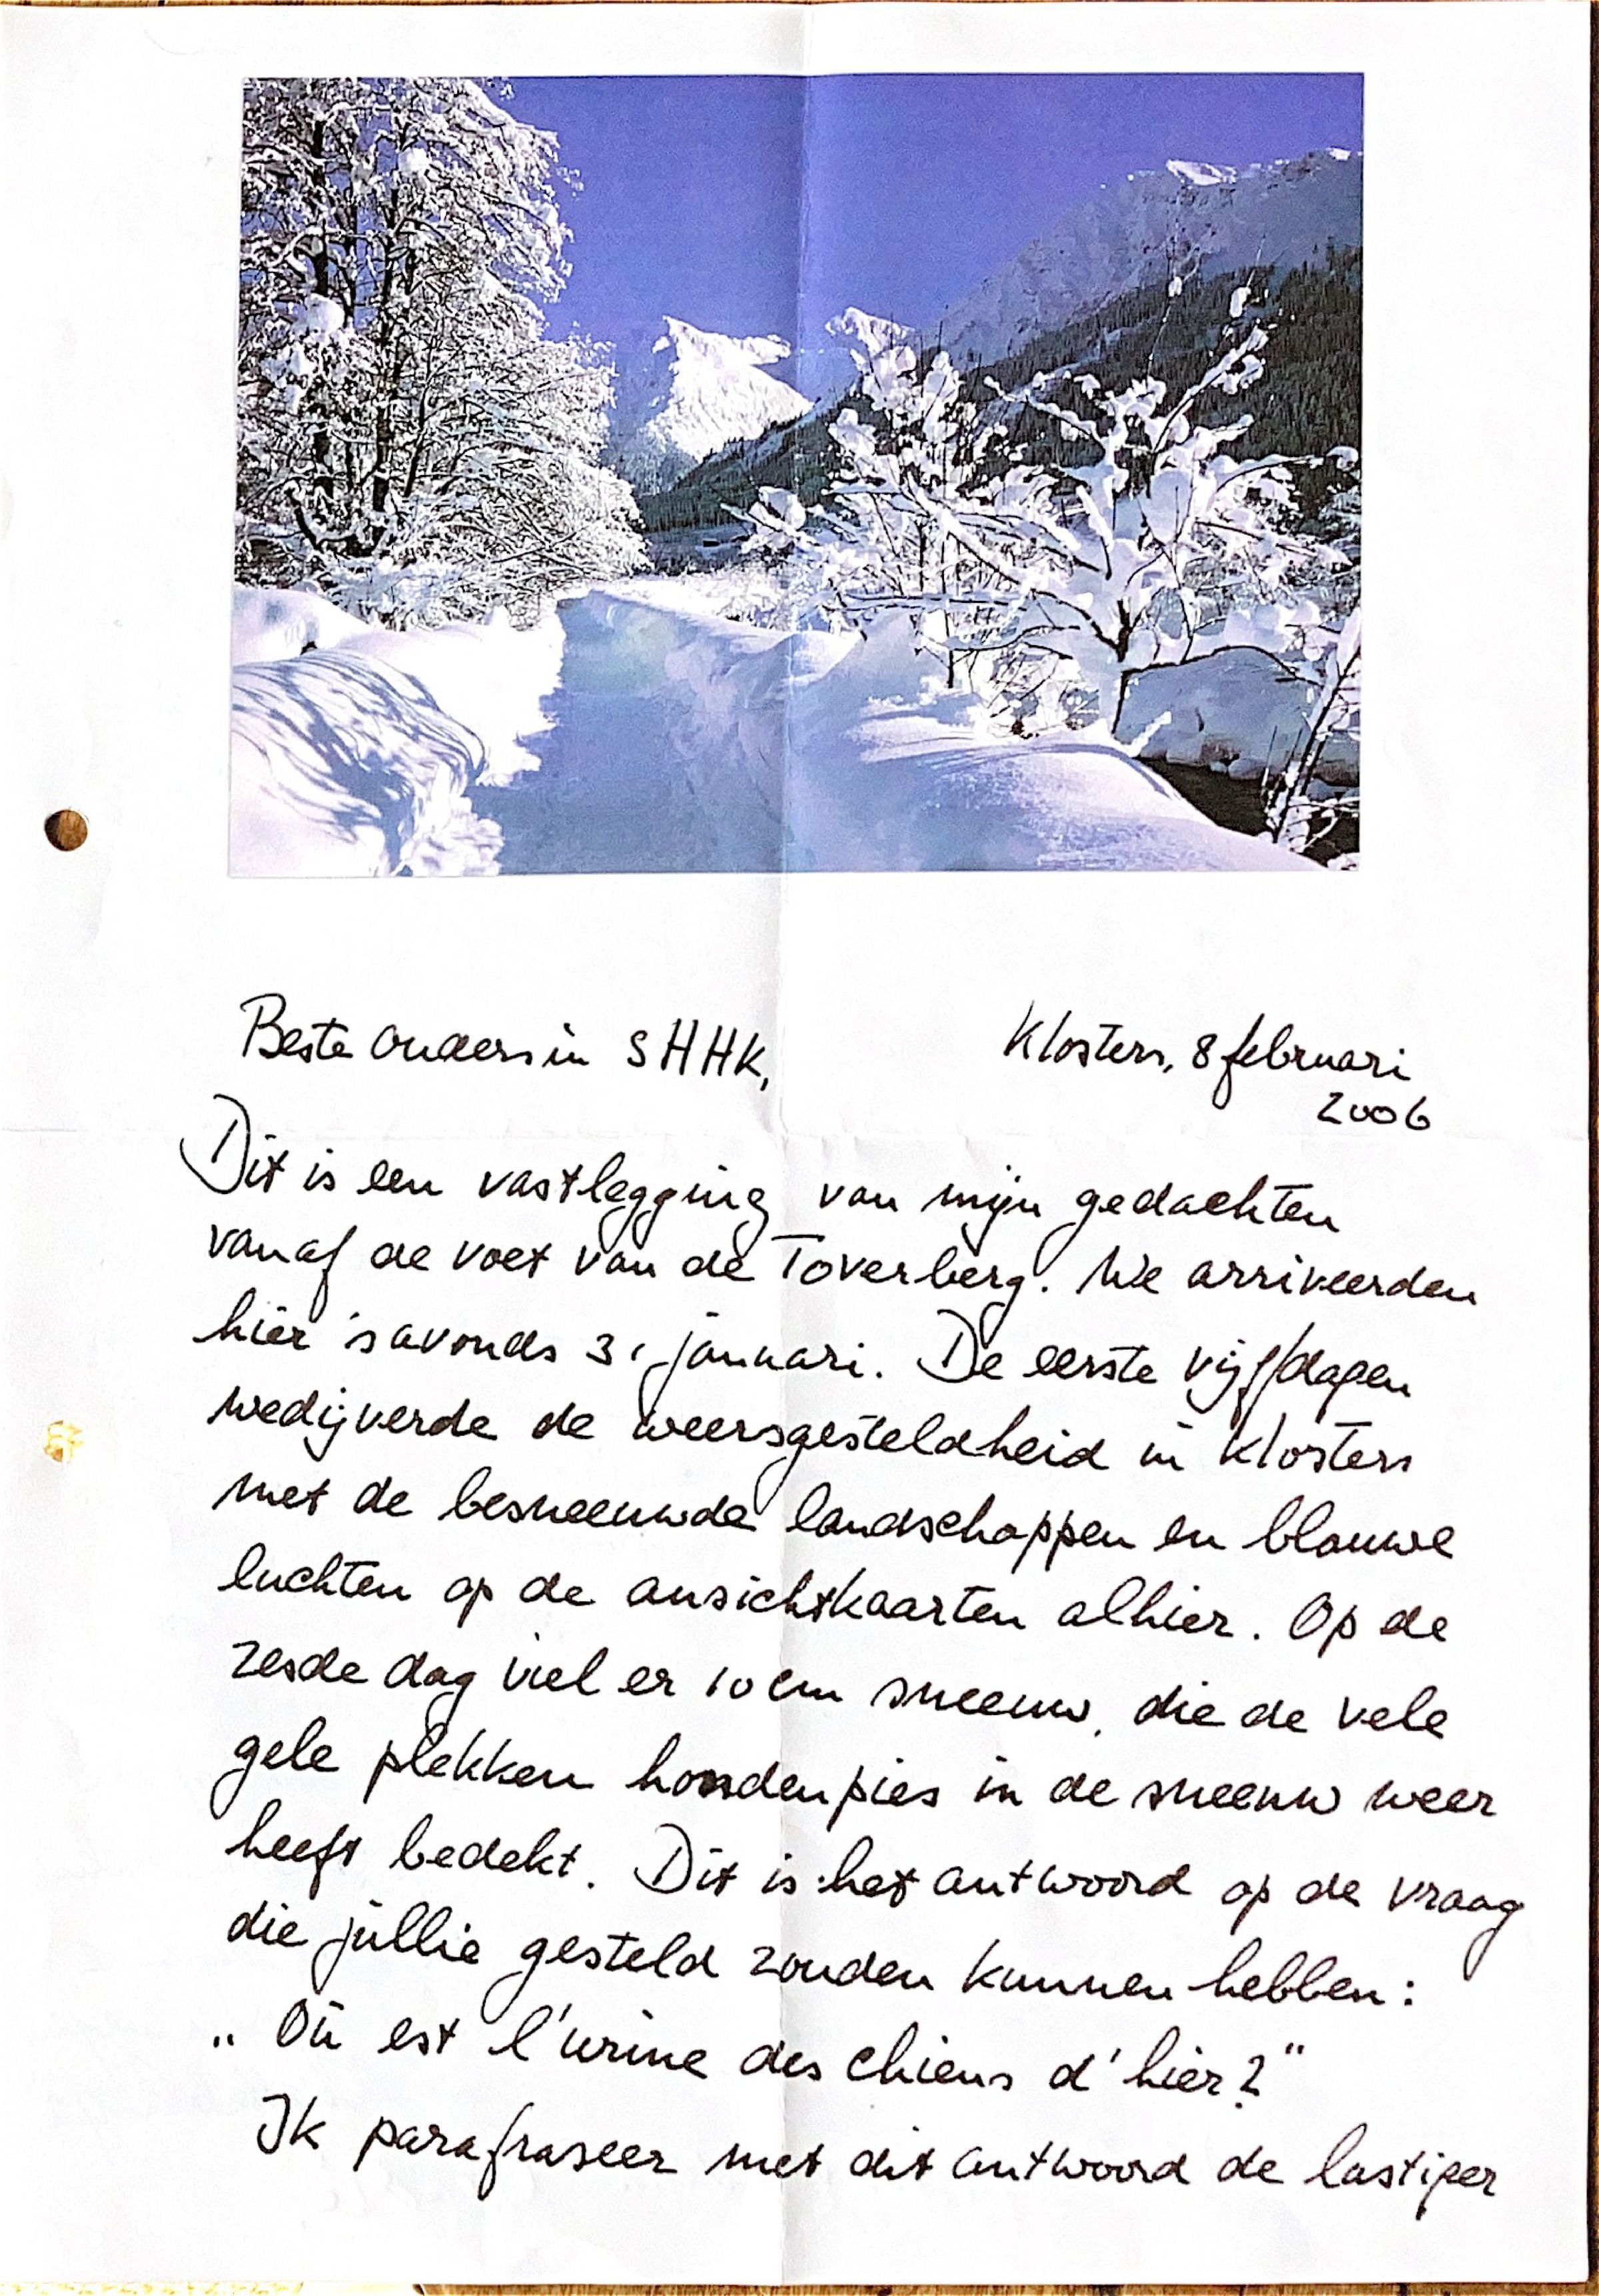 Beste ouders in SHHK,
Klosters, 8 februari
2006
Dit is een vastlegging van mijn gedachten
vanaf de voet van de Toverberg. We arriveerden
hier 's avonds 31 januari. De eerste vijf dagen
wedijverde de weersgesteldheid in Klosters
met de besneeuwde landschappen en blauwe
luchten op de ansichtkaarten alhier. Op de
zesde dag viel er 10 cm sneeuw, die de vele
gele plekken hondenpies in de sneeuw weer
heeft bedekt. Dit is het antwoord op de vraag
die jullie gesteld zouden kunnen hebben:
„Où est l'urine des chiens d'hier?"
Ik parafraseer met dit antwoord de lastiger